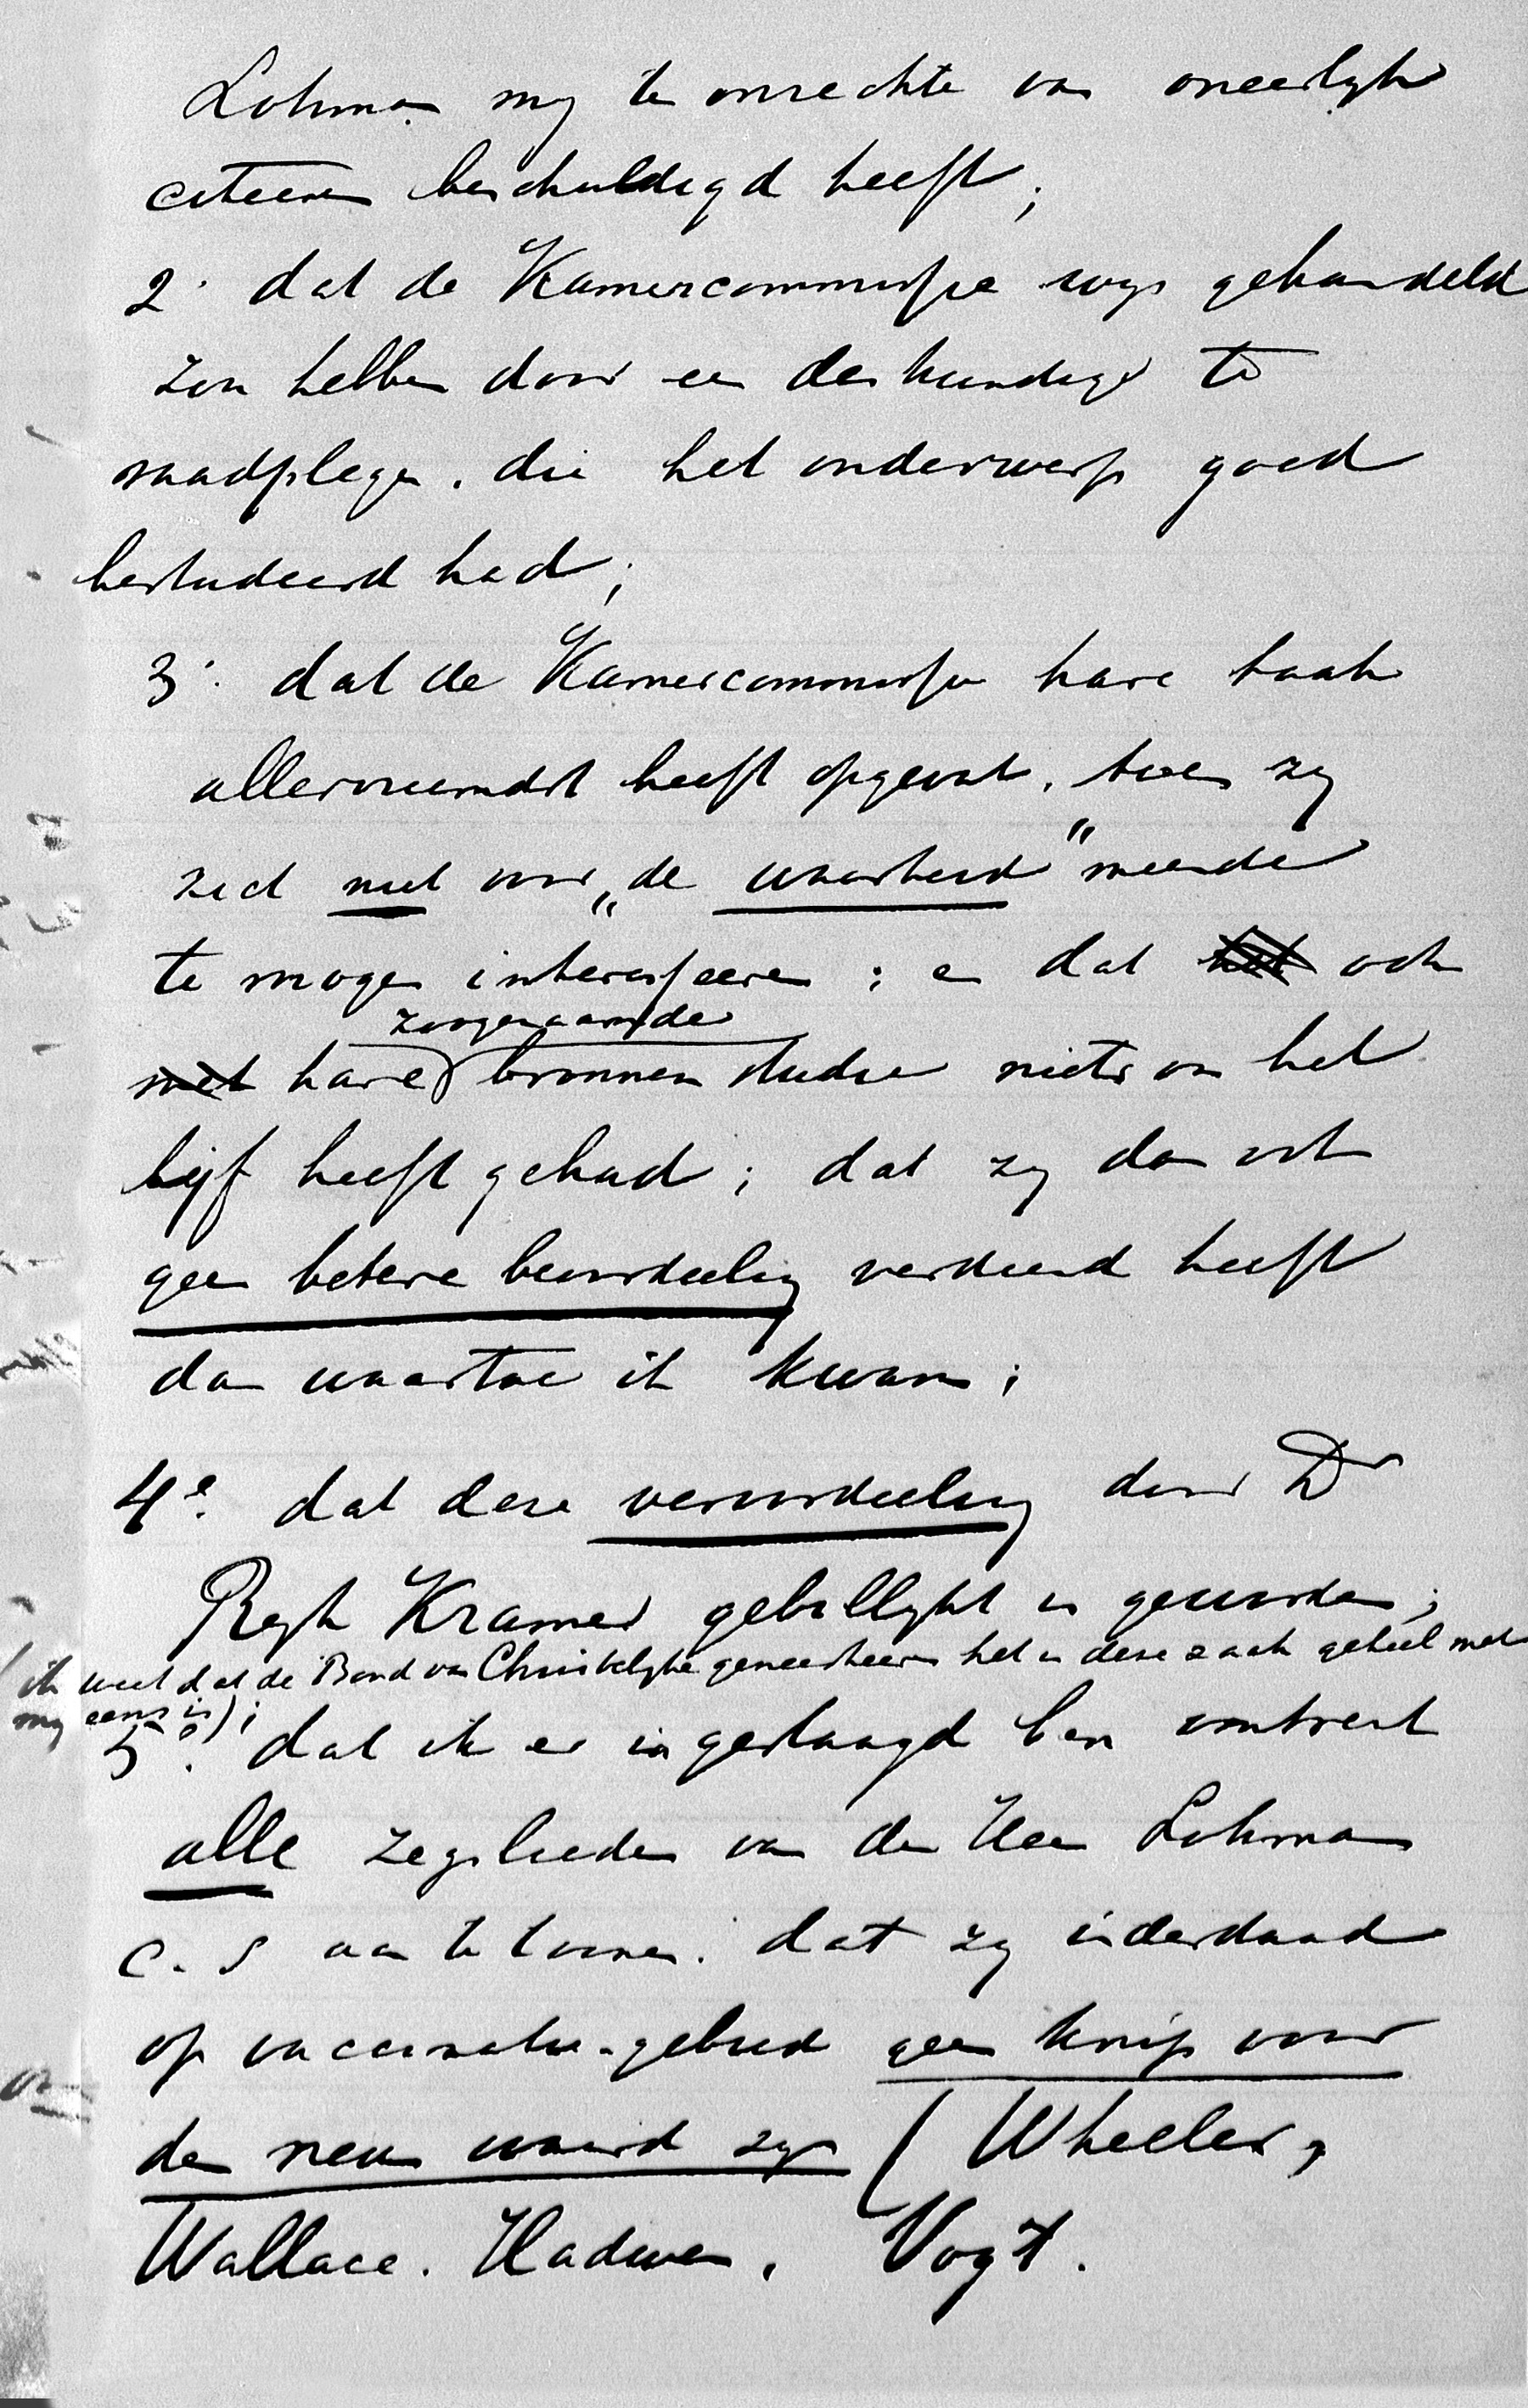 Lohman mij ten onrechte van oneerlijk
citeeren beschuldigd heeft;
2° dat de Kamercommissie wijs gehandeld
zou hebben door een deskundige te
raadplegen, die het onderwerp goed
bestudeerd had;
3° dat de Kamercommissie hare taak
allervreemdst heeft opgevat, toen zij
zich niet voor „de waarheid" meende
te mogen interesseeren; en dat het ook
met hare zoogenaamde bronnen studie niets om het
lijf heeft gehad; dat zij dan ook
geen betere beoordeeling verdiend heeft
dan waartoe ik kwam;
4e. dat deze veroordeeling door Dr
Rijk Kramer gebillijkt is geworden;
(ik weet dat de Bond van Christelijke geneesheeren het in deze zaak geheel met
mij eens is);
5°. dat ik er in geslaagd ben omtrent
alle zegslieden van den Heer Lohman
c.s aan te toonen: dat zij inderdaad
op vaccinatie-gebied geen knip voor
den neus waard zijn (Wheeler,
Wallace. Hadwen, Vogt.